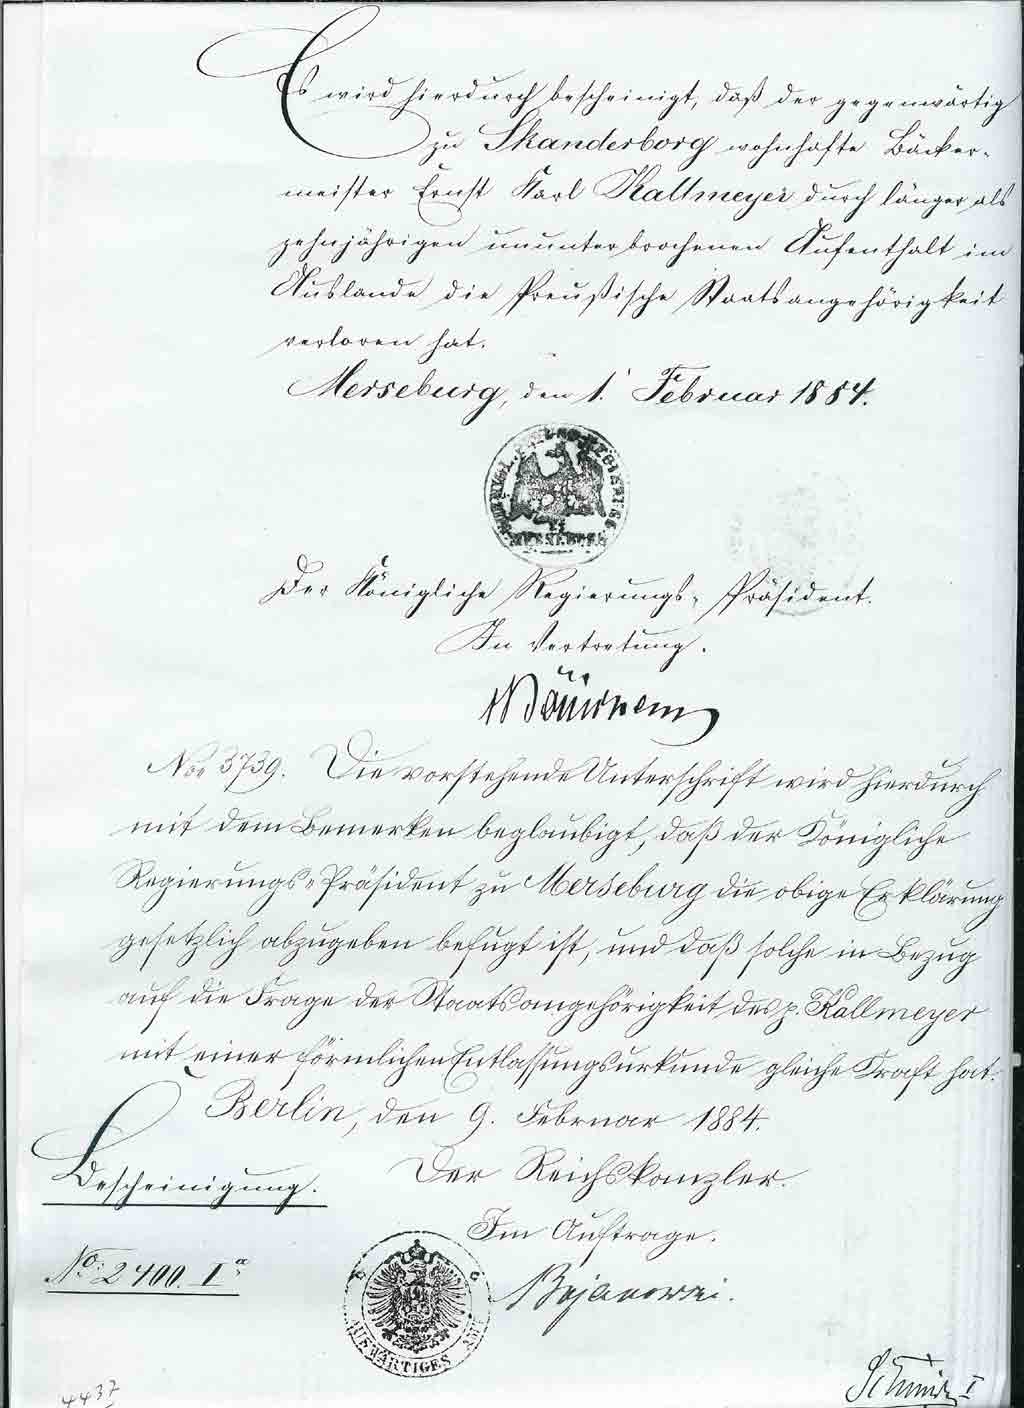 Es wird hierdurch bescheinigt, daß der gegenwärtig
zu Skanderborg wohnhafte Bäcker-
meister Ernst Karl Kallmeyer durch länger als
zehnjährigen ununterbrochenen Aufenthalt im
Auslande die Preußische Staatsangehörigkeit
verloren hat.
Merseburg, den 1. Februar 1884.
MERSEBURG
Der Königliche Regierungs-Präsident.
In Vertretung.
No. 3739. Die vorstehende Unterschrift wird hierdurch
mit dem Bemerken beglaubigt, daß der Königliche
Regierungs-Präsident zu Merseburg die obige Erklärung
gesetzlich abzugeben befugt ist, und daß solche in Bezug
auf die Frage der Staatsangehörigkeit des p. Kallmeyer
mit einer förmlichen Entlassungsurkunde gleiche Kraft hat.
Berlin, den 9. Februar 1884.
Bescheinigung.
Der Reichskanzler.
Im Auftrage.
No: 2400. Ia
AUSWÄRTIGES AMT
Bojanowski.
4437